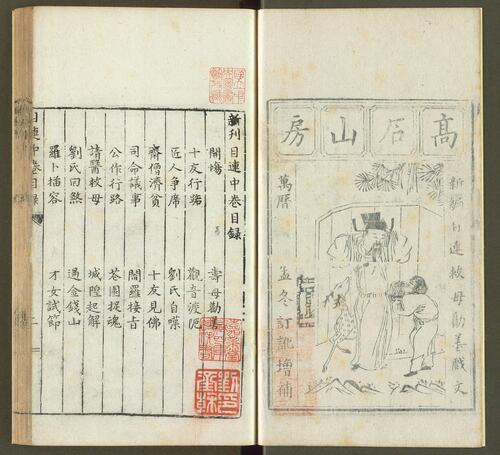 高石山房
新編目連救母勸善戲文
萬曆
孟冬訂訛增補
新刊目連中卷目錄
開場
壽母勸善
十友行路
觀音渡厄
匠人爭席
劉氏自嘆
齋僧濟貧
十友見佛
司命議事
閻羅接旨
公作行路
花園捉魂
請醫救母
城隍起解
劉氏回煞
過金錢山
羅卜描容
才女試節
目連中卷目錄